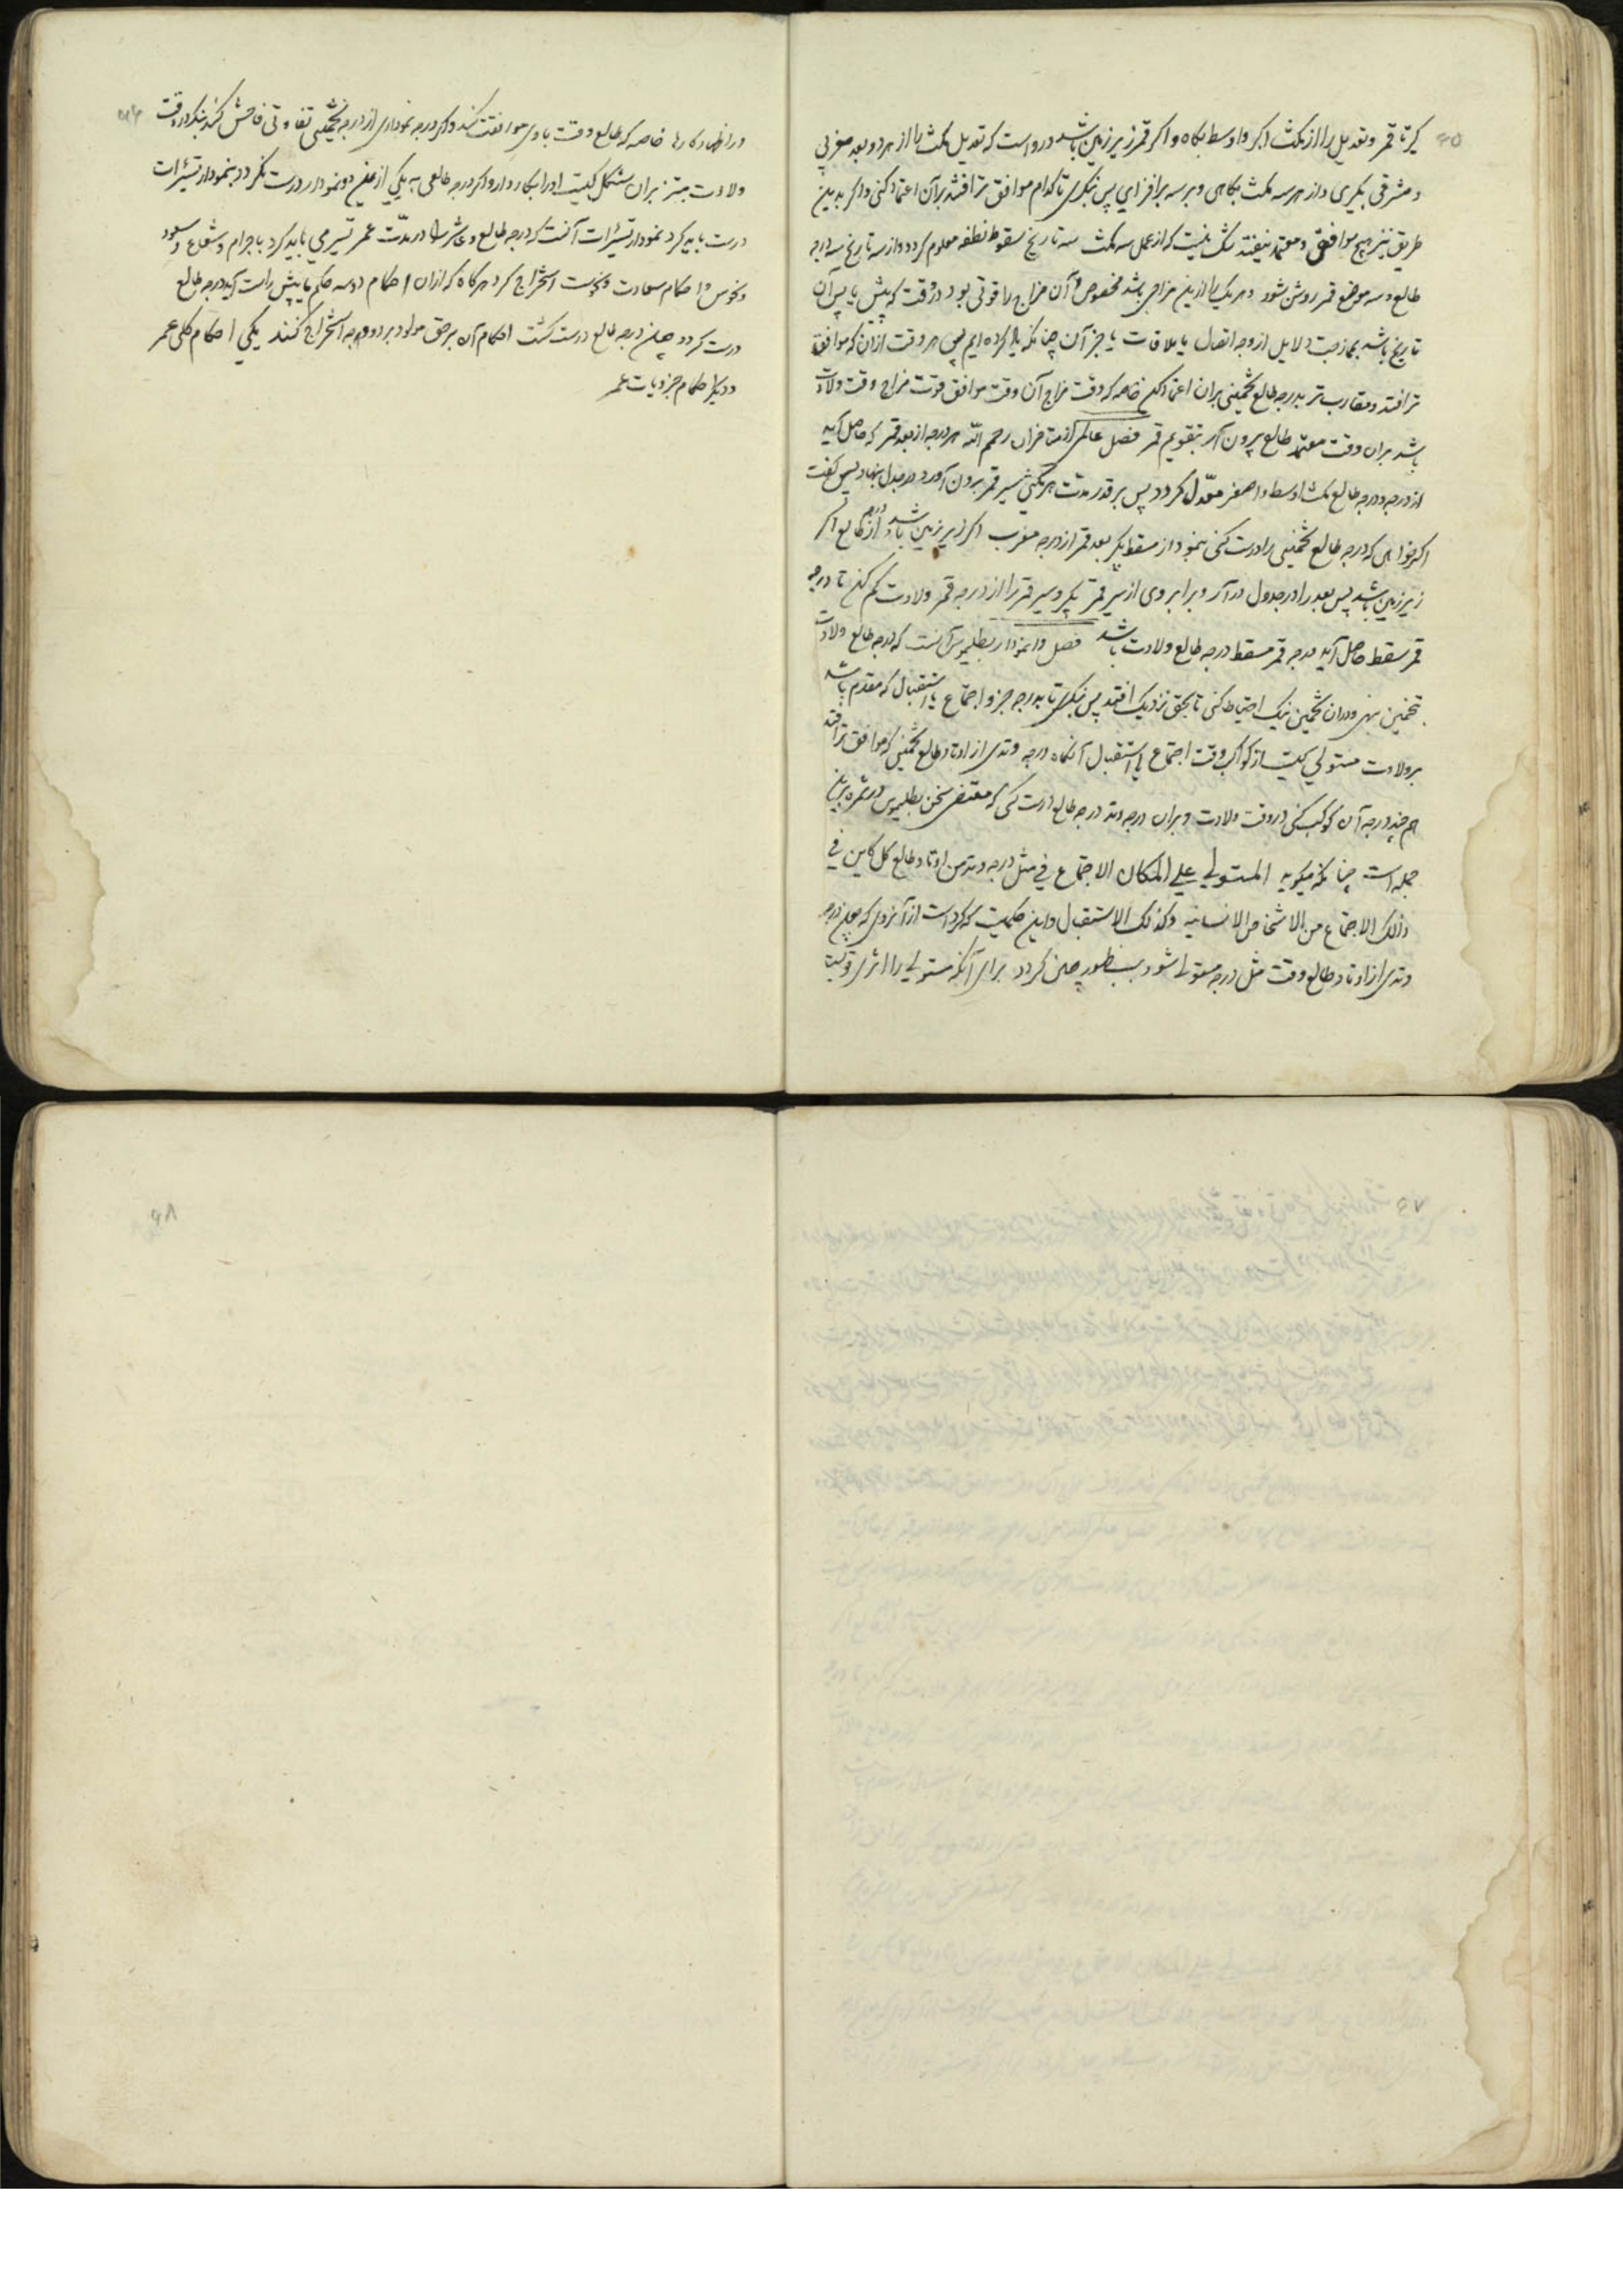 ۹۵
کیر تا قمر و تعدیل را از مکث اکبر و اوسط بکاه و اکر قمر زیر زمین باشد درواست که تعدیل مکث را از هر دو بعد مغربی
و مشرقی بکیری و از هر سه مکث بکاهی و بر سه برافزایی پس بنکری تا کدام موافق تر افتد بر آن اعتماد کنی و اکر بدین
طریق نیز هیچ موافق و معتمد نیفتد شک نیست که از عمل سه مکث سه تاریخ سقوط نطفه معلوم کردد و از سه تاریخ سه درجه
طالع و سه موضع قمر روشن شود و هر یک را ازین مزاجی باشد مخصوص و آن مزاج را قوتی بود در وقت که پیش یا پس آن
تاریخ باشد بممازجت دلایل از وجه اتصال یا ملاقات یا جز آن چنانکه یاد کرده ایم پس هر وقت از آن که موافق
تر افتد و مقارب تر بدرجه طالع تخمینی بر آن اعتماد کن خاصه که وقت مزاج آن وقت موافق قوت مزاج وقت ولادت
باشد بر آن وقت معتمد طالع بیرون آر بتقویم قمر فصل عالمی از متاخران رحمهم الله هر درجه از بعد قمر که حاصل آید
از درجه و درجه طالع مکث اوسط و اصغر معدل کردد پس بر قدر مدت هر مکثی سیر قمر بیرون آورد و در جدول نهاد پس کفت
اکر خواهی که درجه طالع تخمینی را درست کنی بنمودار مسقط بکیر بعد قمر از درجه مغرب اکر زیر زمین باشد و از درجه طالع اکر
زیر زمین باشد پس بعد را در جدول در آر و برابر وی از سیر قمر بکیر و سیر قمر را از درجه قمر ولادت کم کن تا درجه
قمر مسقط حاصل آید درجه قمر مسقط درجه طالع ولادت باشد فصل و نمودار بطلیموس آنست که درجه طالع ولادت
بتخمین بنهی و در آن تخمین نیک احتیاط کنی تا بحق نزدیک افتد پس بنکری تا بدرجه جزو اجتماع یا استقبال که مقدم باشد
بر ولادت مستولی کیست از کواکب وقت اجتماع یا استقبال آنکاه درجه وتدی از اوتاد طالع تخمینی که موافق تر افتد
هم چند درجه آن کوکب کنی در وقت ولادت و بر آن درجه وتد درجه طالع درست کنی که مقتضی سخن بطلیموس در ثمره برین
جمله است چنانکه میکوید المستولی علی المکان الاجتماع فی مثل درجه وتد من اوتاد طالع کل کاین فی
ذلک الاجتماع من الاشخاص الانسانیه وکذلک الاستقبال و این حکمیست که کرد است از آنروی که چون درجه
وتدی از اوتاد طالع وقت مثل درجه مستولی شود بسطور چنین کردد برای آنکه مستولی را اثری قویست
۹۶
در اظهار کارها خاصه که طالع وقت با وی موافقت کند و اکر درجه نموداری از درجه تخمینی تفاوتی فاحش کند بنکر در وقت
ولادت مبتز بر آن شکل کیست او را بکار دار و اکر درجه طالعی به یکی ازین دو نمودار درست نکردد بنمودار تسییرات
درست باید کرد نمودار تسییرات آنست که درجه طالع و عاشر را در مدت عمر تسییر می باید کرد باجرام و شعاع و سعود
و نحوس و احکام سعادت و نحوست استخراج کرد هرکاه که از آن احکام دو سه حکم یا بیش راست آید درجه طالع
درست کردد چون درجه طالع درست کشت احکام آن بر حق مولود بر دو وجه استخراج کنند یکی احکام کلی عمر
و دیکر احکام جزویات عمر
۹۷
۹۸